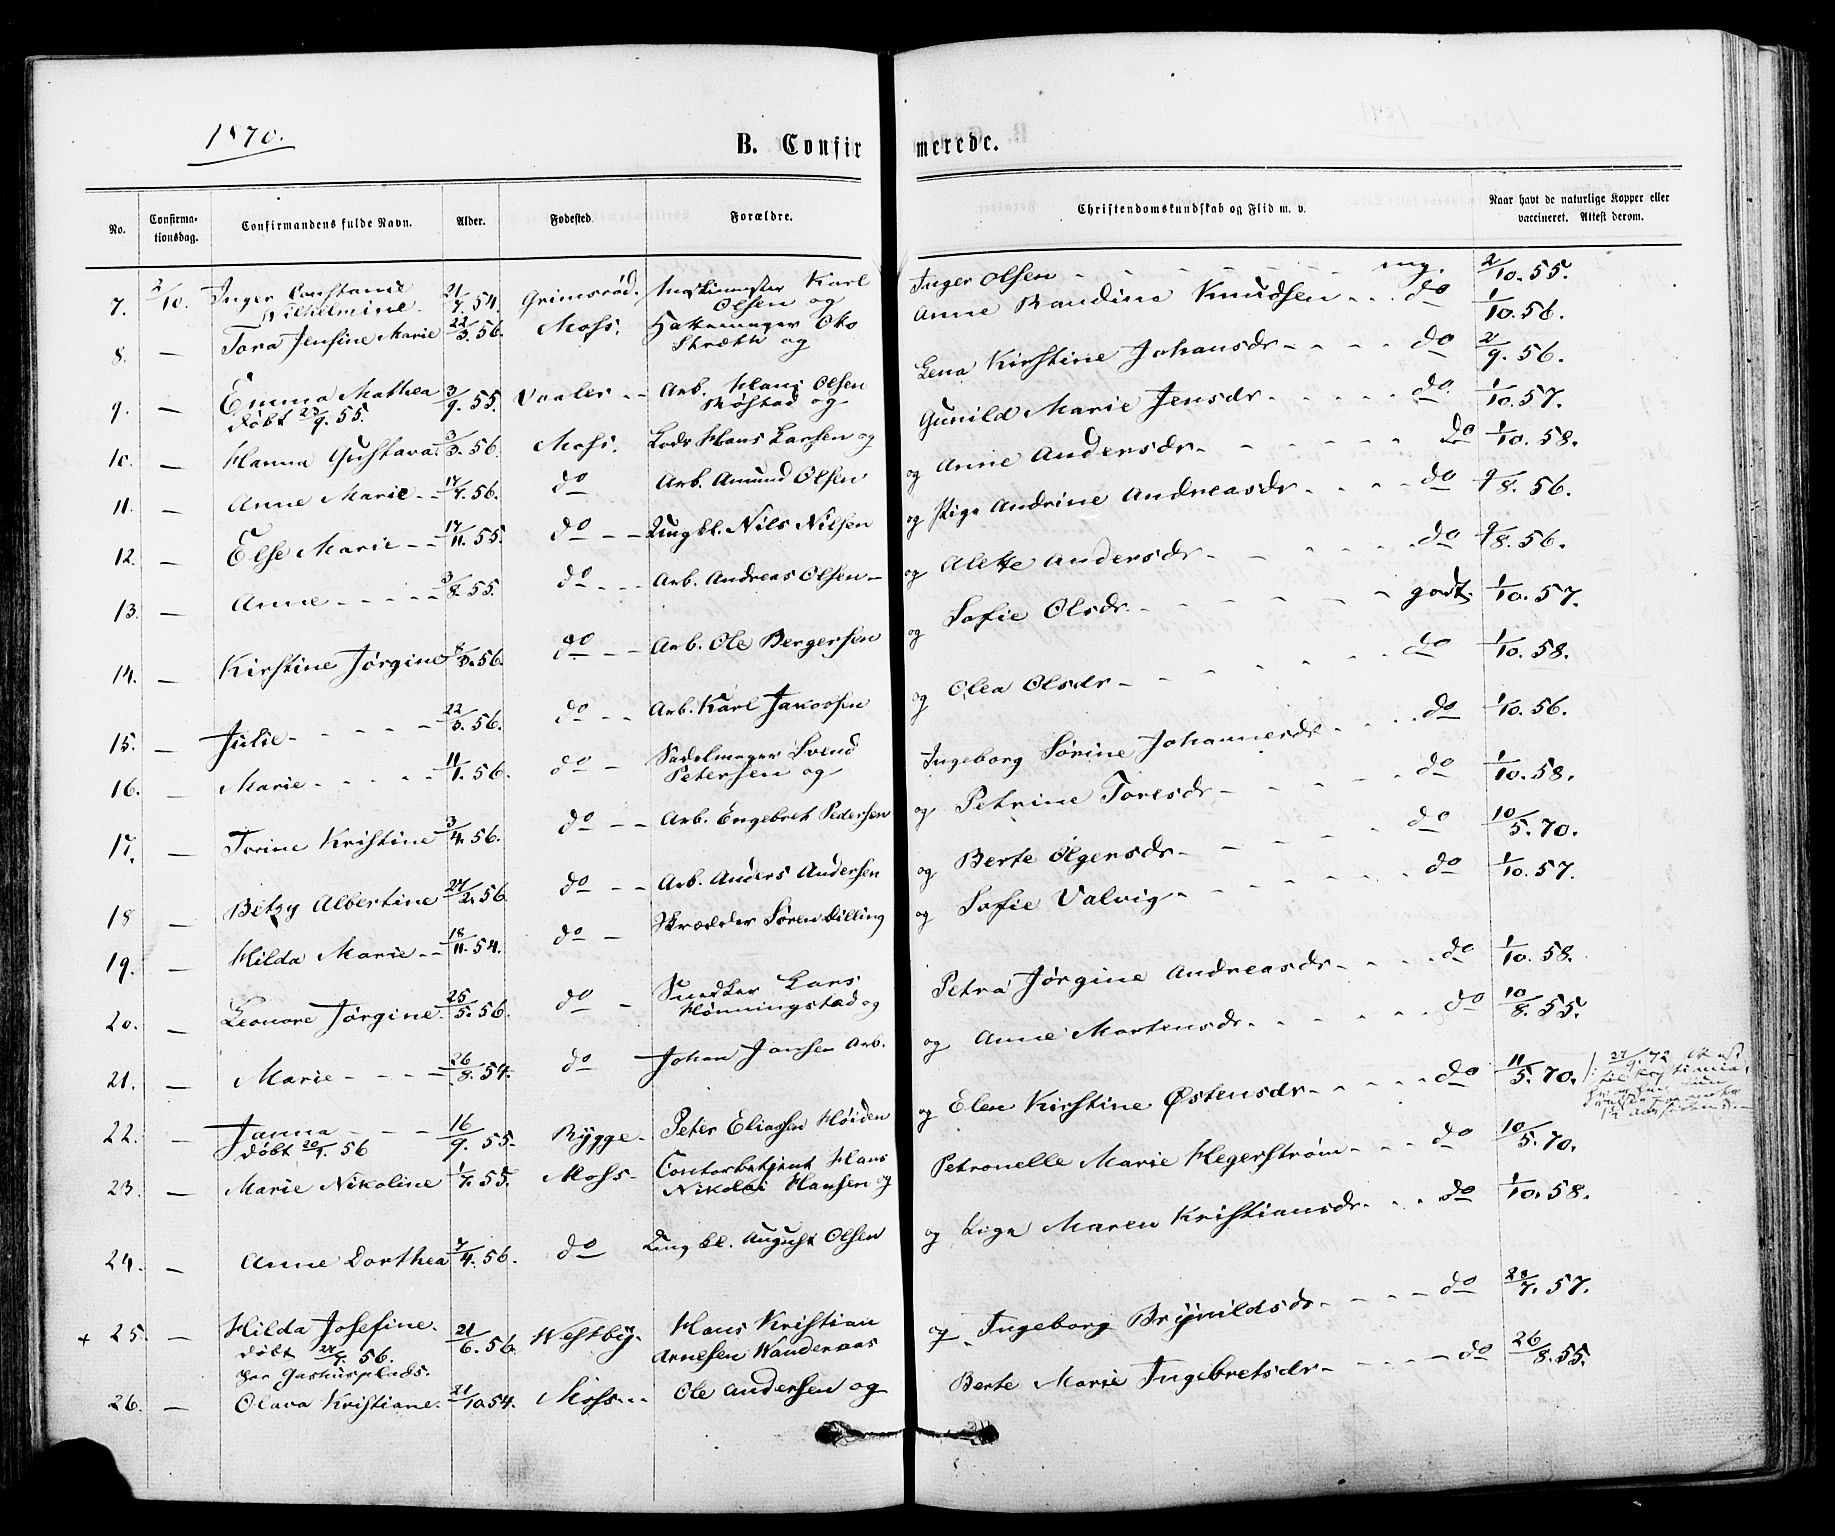 1870.
B. Confirmerede.
No. Confirmationsdag. Confirmandens fulde Navn. Alder. Fødested. Forældre. Christendomskundskab og Flid m. v. Naar havt de naturlige Kopper eller vaccineret. Attest derom.
7. 2/10. Inger Constance 21/7.54. Grimsrød. Karl Inger Olsen mg. 2/10.55.
Vilhelmine. Olsen og
8. — Tora Jensine Marie 22/3.56. Moss. Hattemager Anne Randine Knudsen do 1/10.56.
og
9. — Emma Mathea 3/9.55. Vaaler Arb. Hans Olsen Lena Kirstine Johansdr do 2/9.56.
døbt 23/9.55. Røstad og
10. — Hanna Gustava. 3/3.56. Moss. Hans Larsen og Gunild Marie Jensdr do 1/10.57.
11. — Anne Marie 17/7.56. do Arb. Amund Olsen og Anne Andersdr do 1/10.58.
12. — Else Marie 17/11.55. do Nils Nilsen og Pige Andrine Andreasdr do 9/8.56.
13. — Anne 3/8.55. do Arb. Andreas Olsen og Alette Andersdr do 9/8.56.
14. — Kirstine Jørgine do Arb. Ole Bergersen og Sofie Olsdr godt. 1/10.57.
15. — Julie 22/3.56. do Arb. Karl Jakobsen og Olea Olsdr do 1/10.58.
16. — Marie 11/1.56. do Sadelmager Svend Ingeborg Sørine Johannesdr do 1/10.56.
Petersen og
17. — Torine Kristine 3/4.56. do Arb. Engebret Pedersen og Petrine Toresdr do 1/10.58.
18 — Betzy Albertine 27/2.56 do Arb. Anders Andersen og Berte Olgersdr do 10/5.70.
19. — Hilda Marie 18/11.54. do Skrædder Søren Dilling og Sofie Valvig do 1/10.57.
20. — Leonore Jørgine. 25/5.56. do Snedker Lars Petra Jørgine Andreasdr do 1/10.58.
Hønningstad og
21. — Marie 26/8.54. do Johan Jansen Arb. og Anne Mortensdr do 10/8.55.
22. — Janna 16/9.55. Rygge Peter Eliassen Høiden og Elen Kirstine Østensdr do 11/5.70.
døbt 20/1.56
23. — Marie Nikoline 1/7.55. Moss Contorbetjent Hans Petronelle Marie Hegerstrøm do 10/5.70.
Nikolai Hansen og
24. — Anne Dorthea 7/4.56. do August Olsen og Maren Kristiansdr do 1/10.58.
+ 25. — Hilda Josefine. 21/6.56. Westby Hans Kristian og Ingeborg Brynildsdr do 28/7.57.
døbt 27/7.56. Arnesen Wandernaas
26. — Olava Kristiane. 21/10.54. Moss Ole Andersen og Berte Marie Ingebretsdr do 26/8.55.